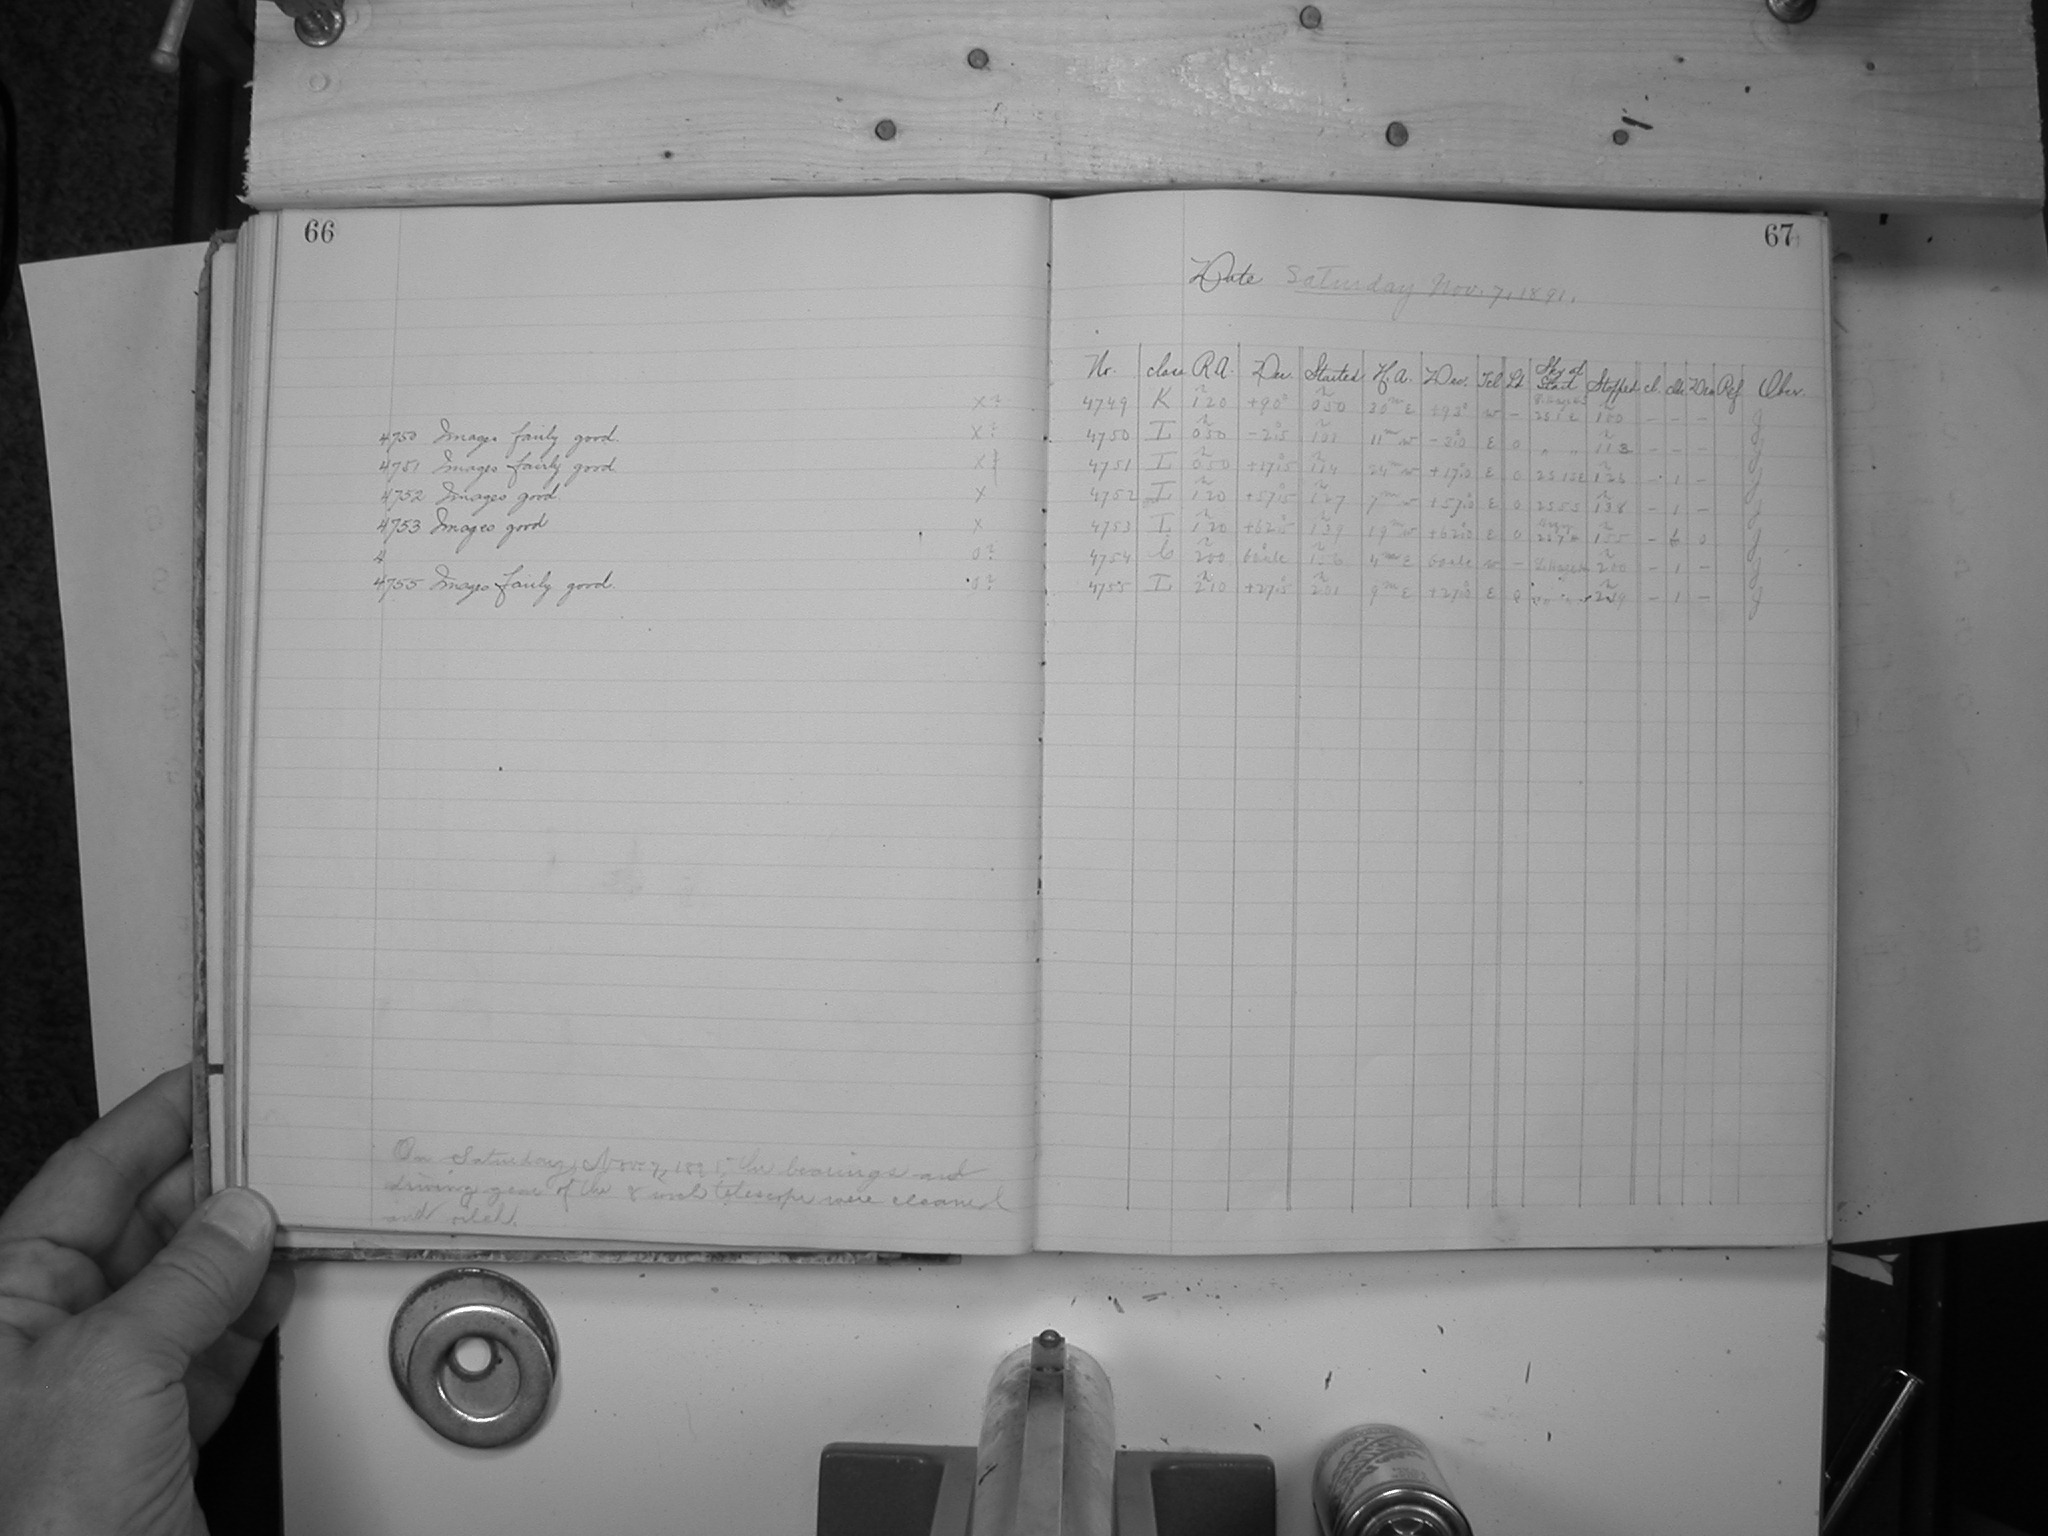 66
x?
4750 Images fairly good. x?
4751 Images fairly good x?
4752 Images good x
4753 Images good x
4 0?
4755 Images fairly good.
On Saturday, Nov. 7, 1891, the bearings and
driving gear of the 8 inch telescope were cleaned
and oiled.
67
Date Saturday Nov. 7, 1891.
Nr. class R.A. Dec. Started H.A. Dec. Tel Sky at Start Stopped cl. Dev Ref Obser.
4749 K 1 20 +90° 0 50 30m E +93° w - 1 00 - - - J
4750 L 0 50 11m w E 0 " " 1 13 - - - J
4751 L 0 50 1 14 24m w +17.0 E 0 - 1 - J
4752 L 1 20 +57.5 1 27 7m w +57.0 E 0 1 38 - 1 - J
4753 L 1 20 +62.5 1 39 19m w +62.0 E 0 1 55 - 0 J
4754 C 2 00 1 56 4m E w - 2 00 - 1 - J
4755 L 2 10 +27.5 2 01 9m E +27.0 E - 1 - J